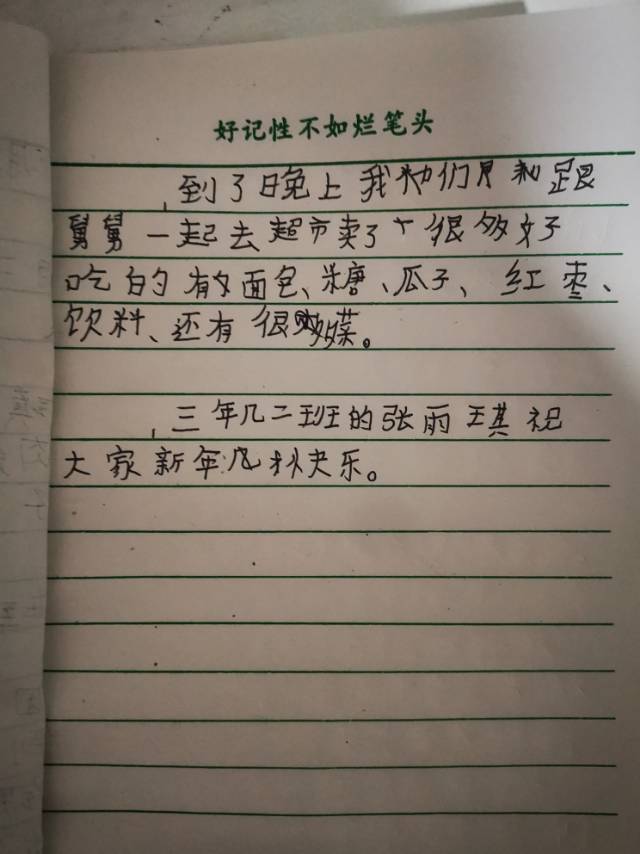 好记性不如烂笔头
到了晚上我们和跟
舅舅一起去超市卖了个很多好
吃的有面包、糖、瓜子、红枣、
饮料、还有很多菜。
三年几二班的张雨琪祝
大家新年几快乐。